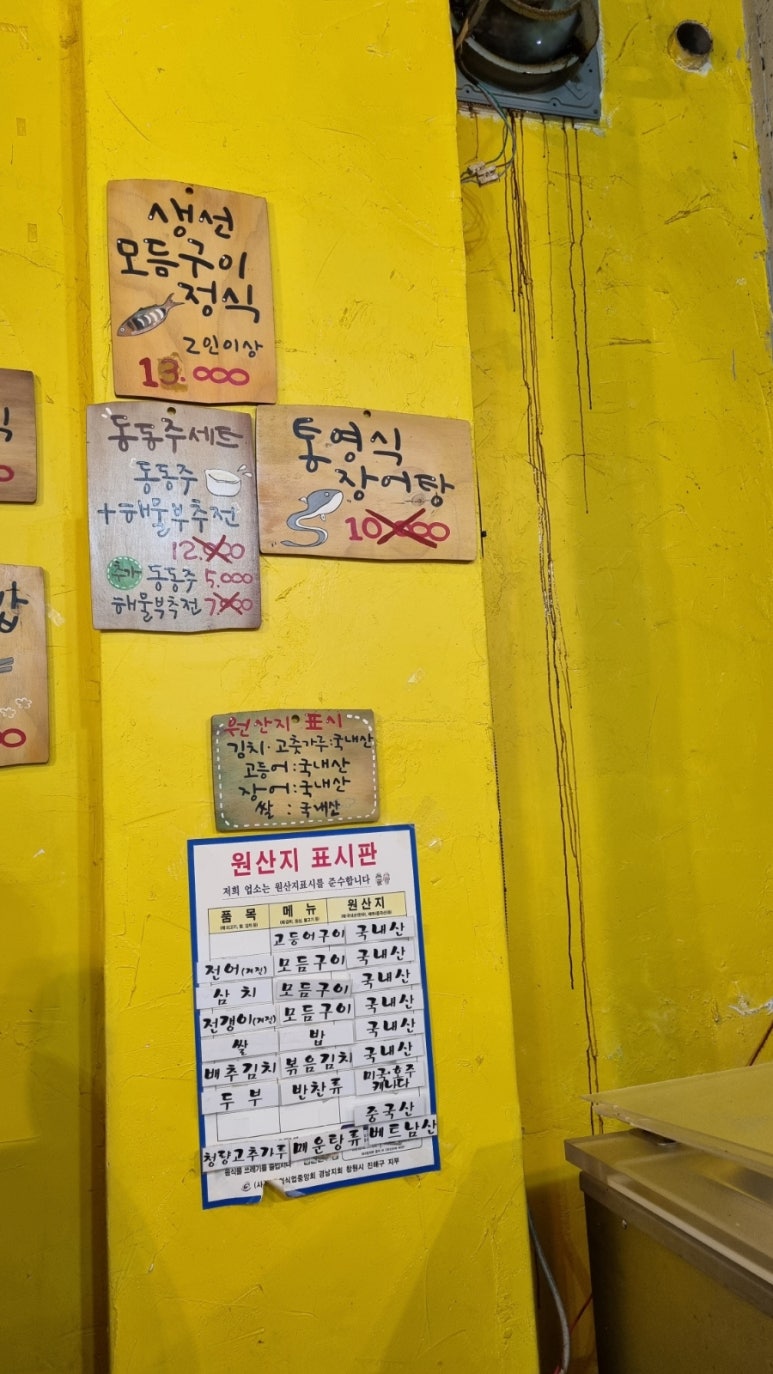 생선
모듬구이
정식
2인이상
13.000
식
동동주세트
동동주
+해물부추전
12.000
추가 동동주 5.000
해물부추전 7.000
통영식
장어탕
10.000
밥
원산지 표시
김치·고춧가루:국내산
고등어:국내산
장어:국내산
쌀 : 국내산
원산지 표시판
저희 업소는 원산지표시를 준수합니다
품 목 메 뉴 원산지
고등어구이 국내산
전어(거진) 모듬구이 국내산
삼 치 모듬구이 국내산
전갱이(거진) 모듬구이 국내산
쌀 밥 국내산
배추김치 볶음김치 국내산
두 부 반찬류 미국·호주
캐나다
중국산
청양고추가루 매운탕류 베트남산
경남지회 창원시 진해구 지부